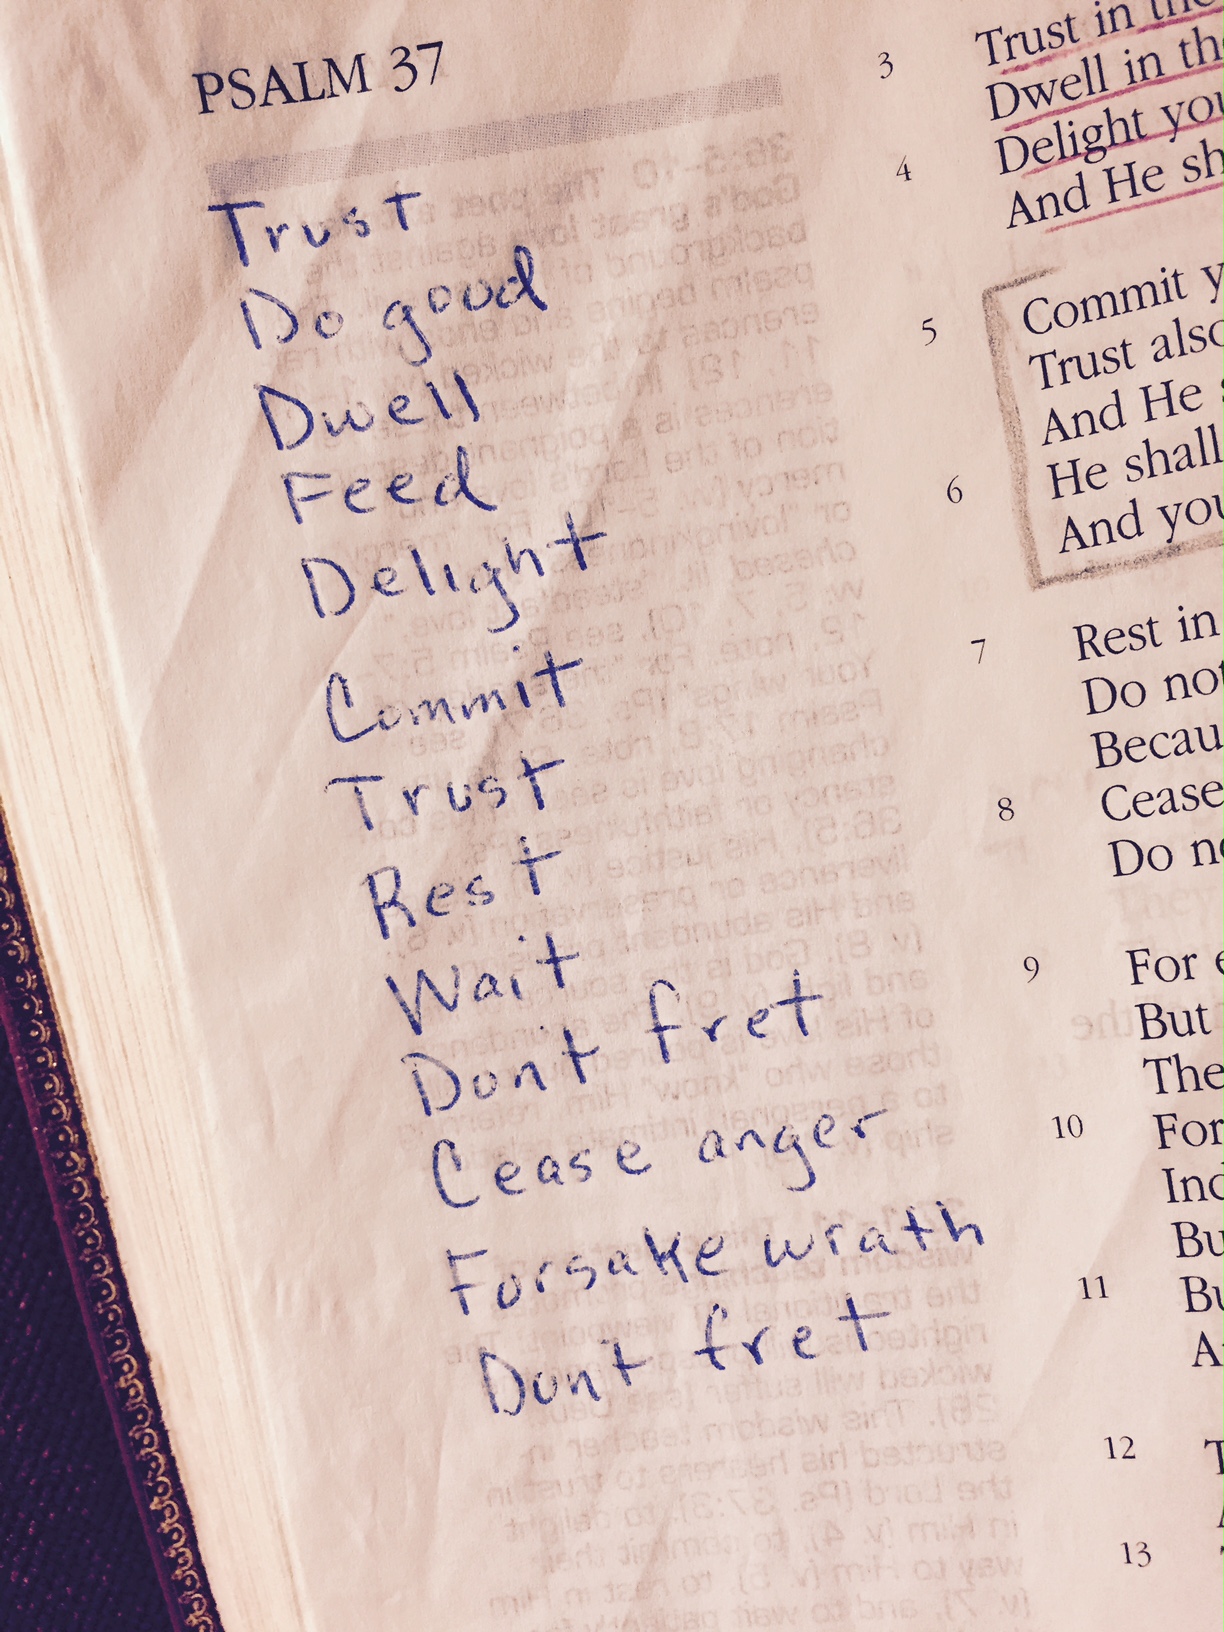 PSALM 37
Trust
Do good
Dwell
Feed
Delight
Commit
Trust
Rest
Wait
Don't fret
Cease anger
Forsake wrath
Don't fret
3 Trust in the
Dwell in th
4 Delight you
And He sh
5 Commit y
Trust also
And He s
6 He shall
And you
7 Rest in
Do not
Becau
8 Cease
Do no
9 For e
But
The
10 For
Ind
Bu
11 Bu
A
12 T
13